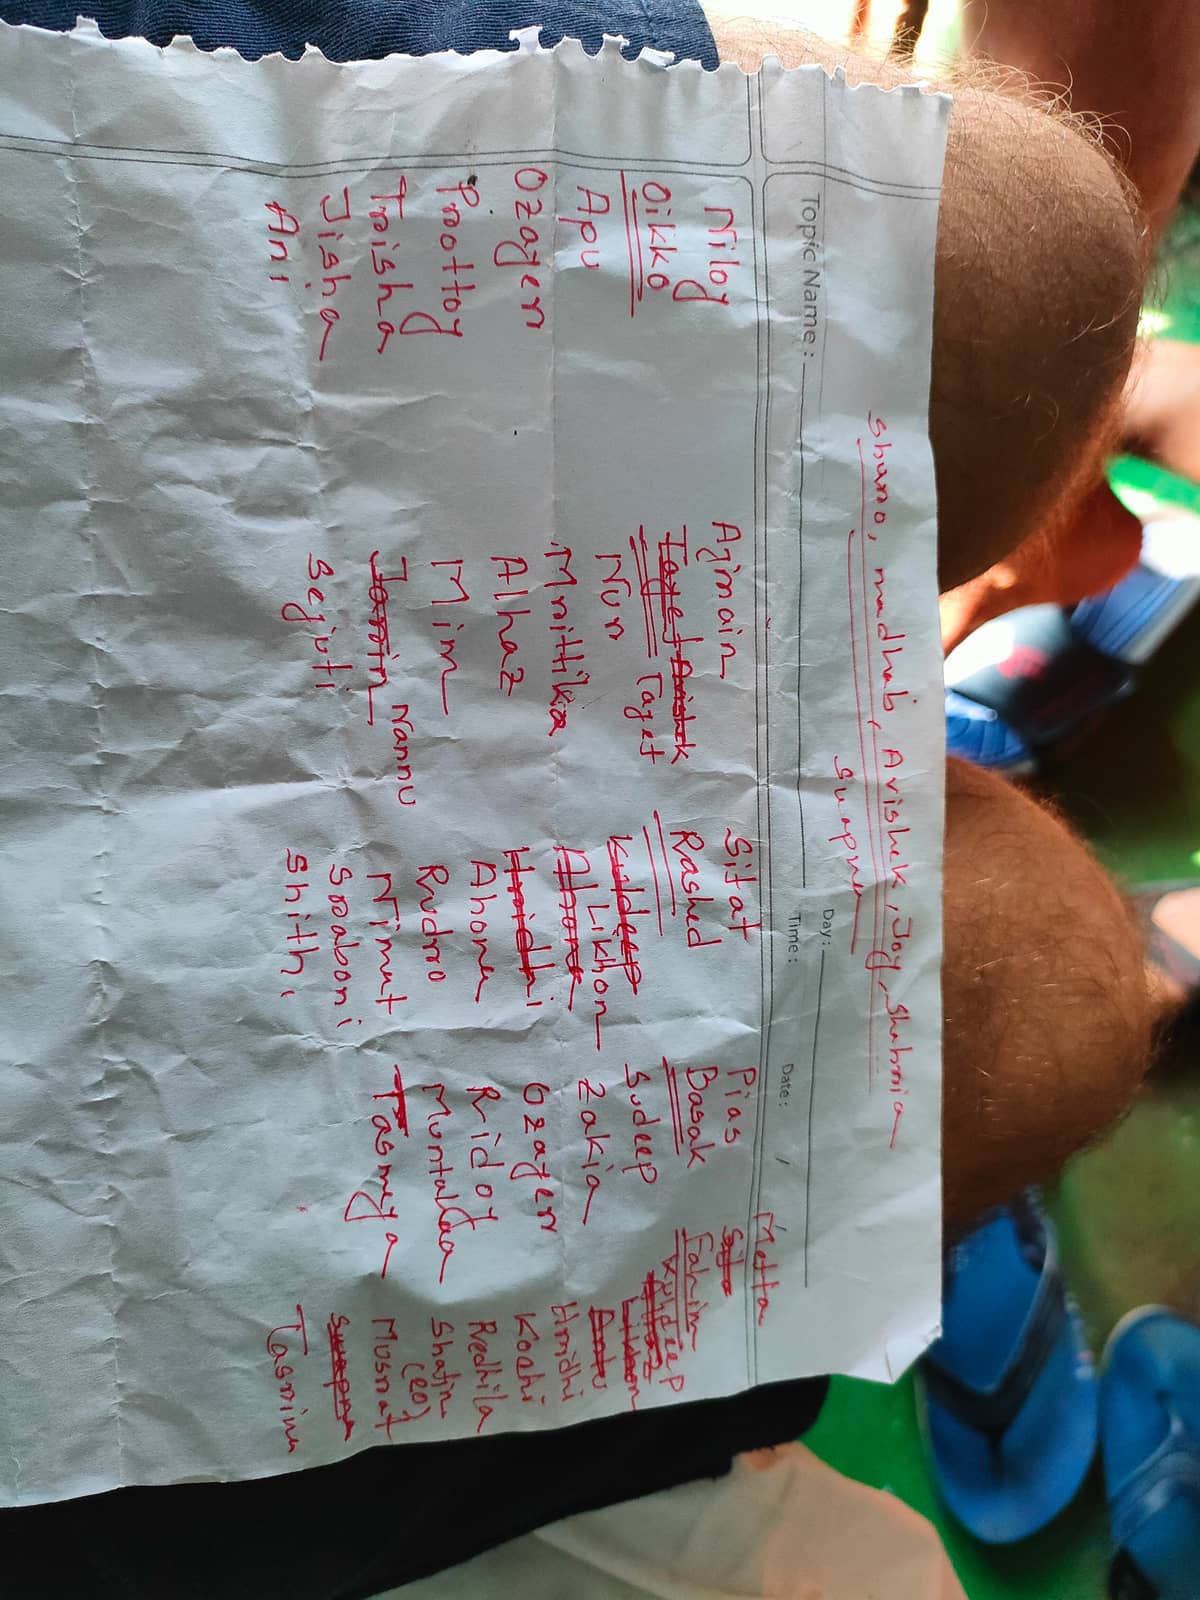 Shuvo, madhab, Avishek, Joy, Shahria
Swapnu
Day:
Topic Name: Time: Date: /
Niloy
Oikko
Apu
Ozayer
Prottoy
Traisha
Jisha
Ani
Ajmain
Nur Tajet
Mrittika
Alhaz
Mim
Nannu
Sejuti
Sifat
Rashed
Kuldeep
Likhon
Ahona
Hridhi
Ahona
Rudro
Nimut
Sraboni
Shithi
Pias
Basak
Sudeep
Zakia
Ozayer
Ridoy
Muntaha
Tasmeya
Metta
Fahim
Kuldeep
Likhon
Hridhi
Kochi
Redhila
Shafin
Musrat
Tasnim